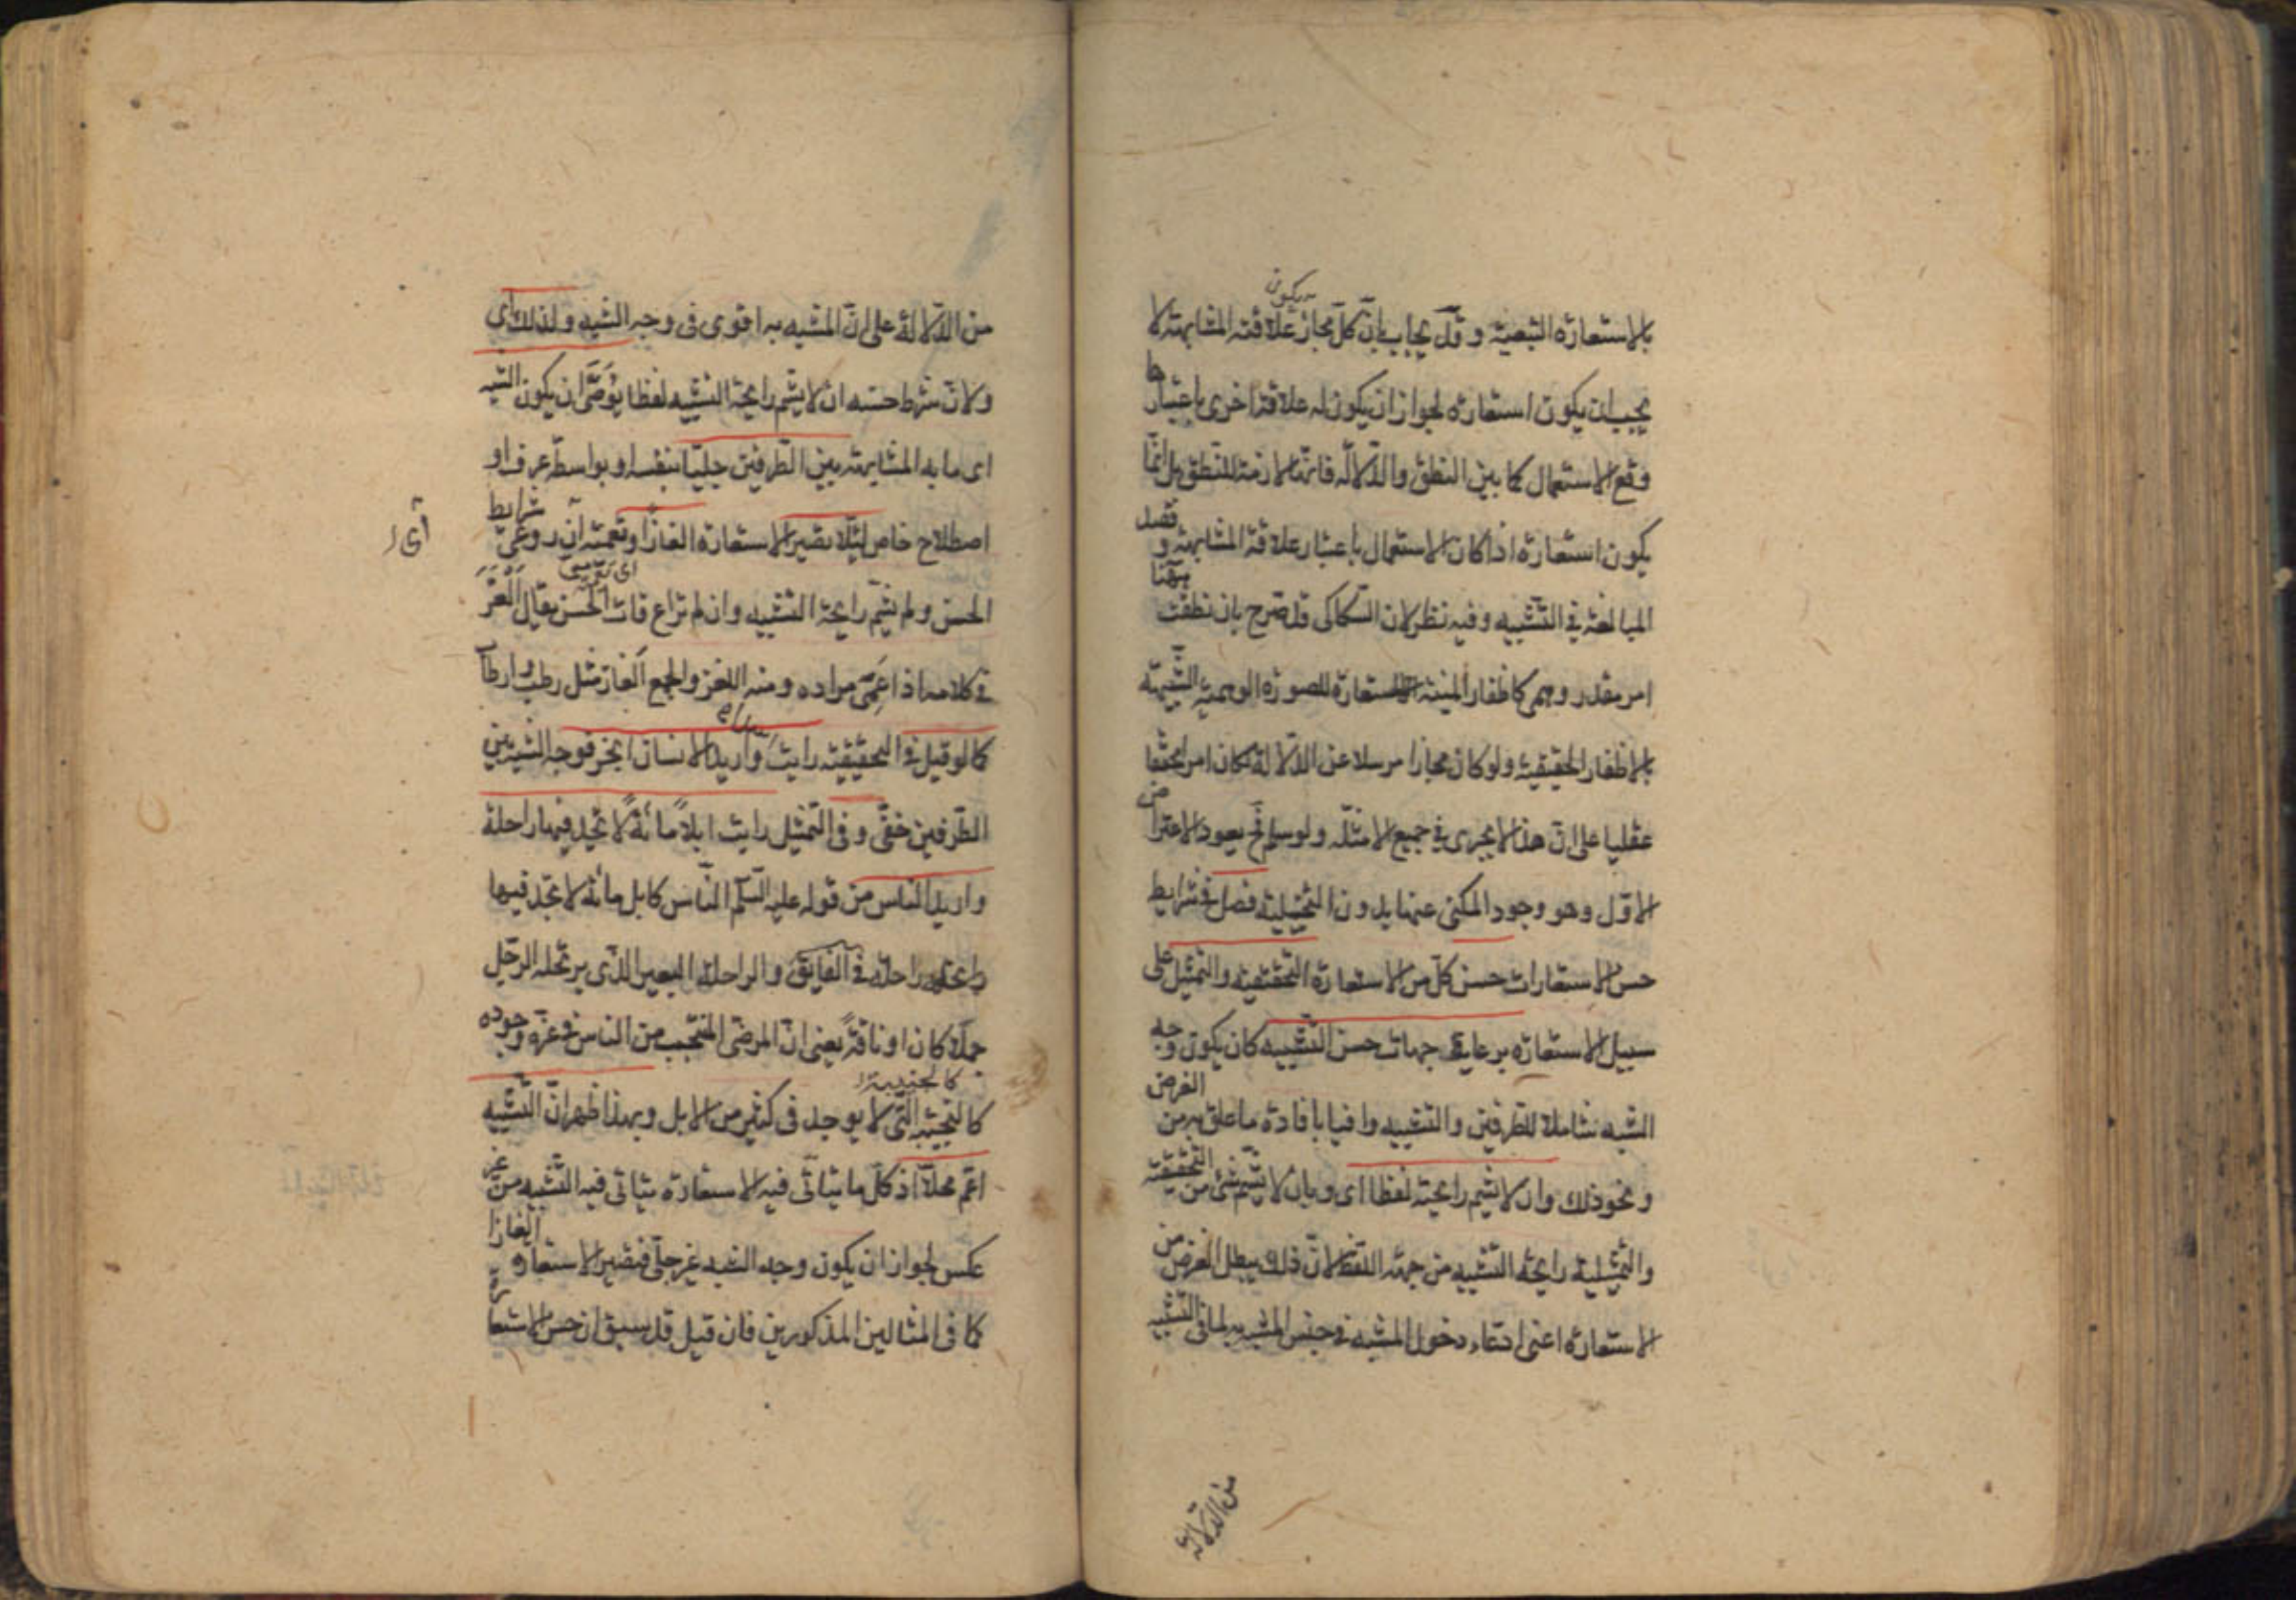 يكون
بالاستعارة التبعية وقد يجاب بان كل مجاز علاقته المشابهة لا
يجب ان يكون استعارة لجواز ان يكون له علاقة اخرى باعتبارها
وقع الاستعمال كما بين النطق والدلالة فانها لازمة للنطق بل انما
يكون استعارة اذا كان الاستعمال باعتبار علاقة المشابهة وقصد
المبالغة في التشبيه وفيه نظر لان السكاكى قد صرح بان نطقت ههنا
امر مقدر وهمى كاظفار المنية المستعارة للصورة الوهمية الشبيهة
بالاظفار الحقيقية ولو كان مجازا مرسلا عن الدلالة لكان امرا محققا
عقليا على ان هذا لا يجرى في جميع الامثلة ولو سلم فح يعود الاعتراض
الاول وهو وجود المكنى عنها بدون التخييلية فصل في شرايط
حسن الاستعارات حسن كل من الاستعارة التحقيقية والتمثيل على
سبيل الاستعارة برعاية جهات حسن التشبيه كان يكون وجه
الشبه شاملا للطرفين والتشبيه وافيا بافادة ما علق به من الغرض
ونحو ذلك وان لا يشم رايحته لفظا اى وبان لا يشم شئ من التحقيقية
والتمثيلية رايحة التشبيه من جهة اللفظ لان ذلك يبطل الغرض من
الاستعارة اعنى ادعاء دخول المشبه في جنس المشبه به لما في التشبيه
من الدلالة
من الدلالة على ان المشبه به اقوى فى وجه الشبه ولذلك اى
ولان شرط حسنه ان لا يشم رايحة التشبيه لفظا يوصى ان يكون الشبه
اى ما به المشابهة بين الطرفين جليا بنفسه او بواسطة عرف او
اصطلاح خاص لئلا تصير الاستعارة الغازا وتعمية ان روعى شرايط
اى
الحسن ولم يشم رايحة التشبيه وان لم تراع فات الحسن يقال الغز
في كلامه اذا عمى مراده ومنه اللغز والجمع الغاز مثل رطب وارطاب
كما لو قيل في التحقيقية رايت اسدا واريد الانسان ابخر فوجه الشبه بين
الطرفين خفى وفى التمثيل رايت ابلا مائة لا تجد فيها راحلة
واريد الناس من قوله عليه السلم الناس كابل مائة لا تجد فيها
راحلة في الفايق والراحلة البعير الذى يرتحله الرجل
جملا كان او ناقة يعنى ان المرضى المنتجب من الناس في عزة وجوده
كالنجيبة التى لا يوجد فى كثير من الابل وبهذا ظهر ان التشبيه
اعم محلا اذ كل ما يتاتى فيه الاستعارة يتاتى فيه التشبيه من غير
عكس لجواز ان يكون وجه الشبه غير جلى فتصير الاستعارة الغازا
كما فى المثالين المذكورين فان قيل قد سبق ان حسن الاستعارة